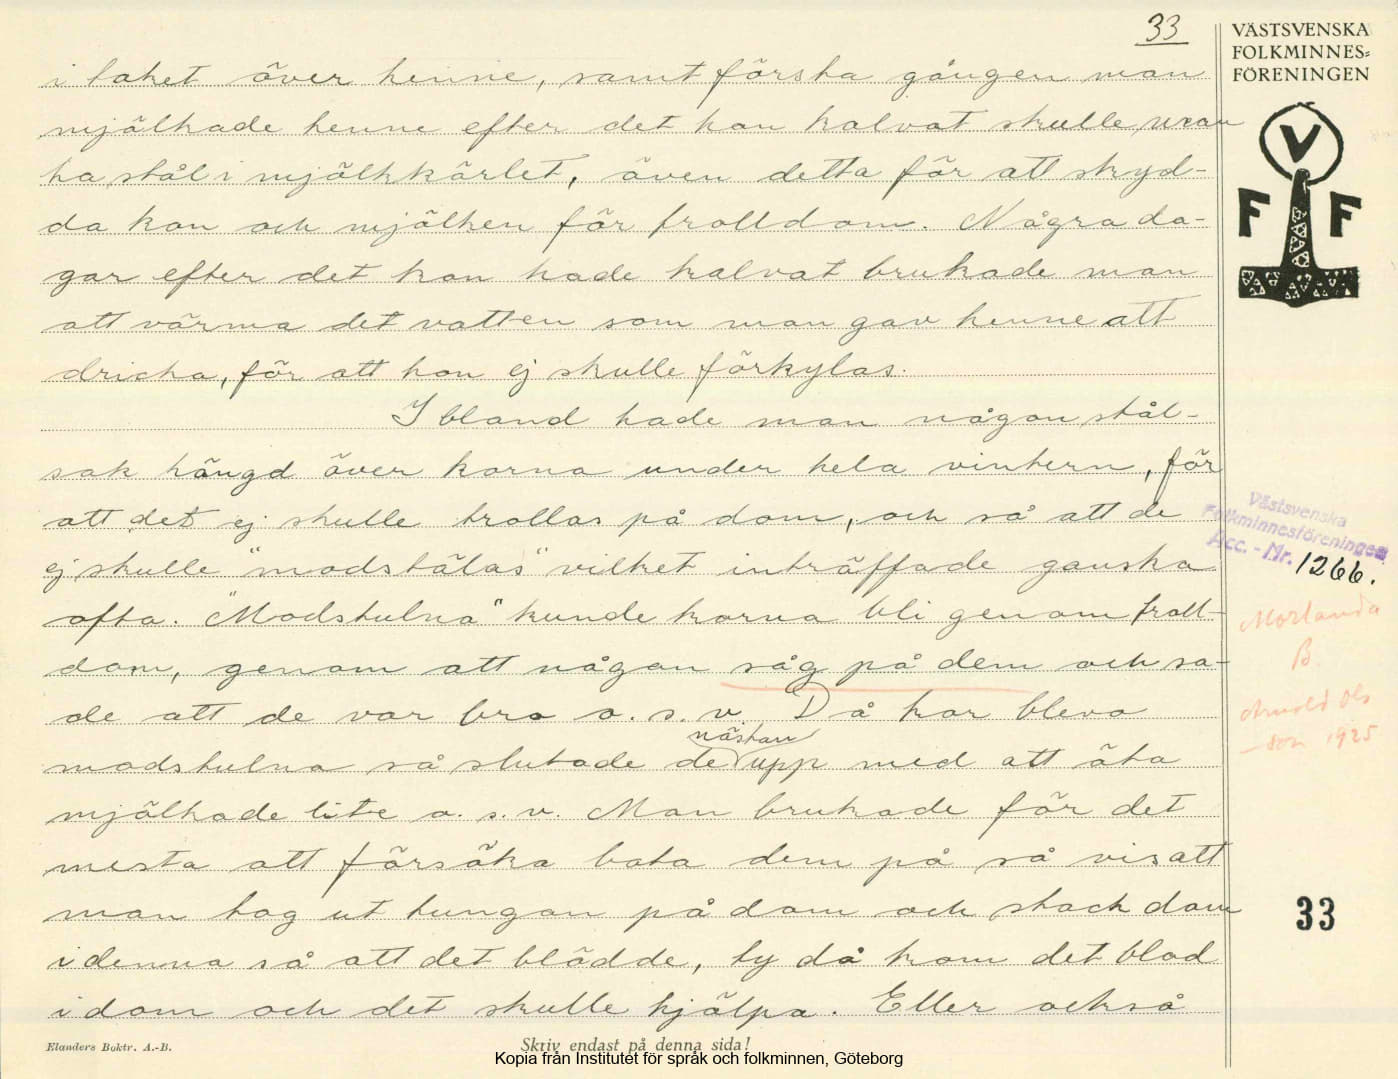 33
VÄSTSVENSKA
FOLKMINNES=
FÖRENINGEN
V
F F
i taket över henne, samt första gången man
mjölkade henne efter det kon kalvat skulle man
ha stål i mjölkkärlet, även detta för att skyd-
da kon och mjölken för trolldom. Några da-
gar efter det kon hade kalvat brukade man
att värma det vatten som man gav henne att
dricka, för att hon ej skulle förkylas.
Ibland hade man någon stål-
sak hängd över korna under hela vintern, för
att det ej skulle trollas på dom, och så att de
ej skulle "modstälas" vilket inträffade ganska
ofta. "Modstulna" kunde korna bli genom troll-
dom, genom att någon såg på dem och sa-
de att de var bra o.s.v. Då kor blevo
nästan
modstulna så slutade de upp med att äta
mjölkade lite o.s.v. Man brukade för det
mesta att försöka bota dem på så vis att
man tog ut tungan på dom och stack dom
i denna så att det blödde, ty då kom det blod
i dom och det skulle hjälpa. Eller också
Västsvenska
Folkminnesföreningen
Acc. - Nr. 1266.
Morlanda
B
Arnold Ols
-son 1925
33
Elanders Boktr. A.-B.
Skriv endast på denna sida!
Kopia från Institutet för språk och folkminnen, Göteborg